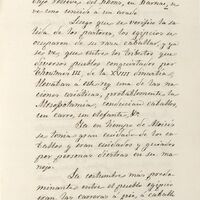 bajo relieve del Ramo, en Karnac, se
ve uno uncido a un carro.
Luego que se verificó la sa-
lida de los pastores, los egipcios se
ocuparon de su raza caballar, y pa-
ve, que entre los tributos que
diversos pueblos conquistados por
Thoutmes III, de la XVIII dinastía,
llevaban a este rey una de las
naciones asiáticas, probablemente, la
Mesopotamia, conducían caballos,
con carro, un elefante, &c.
Ya en tiempo de Moisés
se tenía gran cuidado de los ca-
ballos y eran cuidados y guiados
por personas diestras en su ma-
nejo.
La costumbre mas predo
minante entre el pueblo egipcio
eran las carreras a pie, a caballo